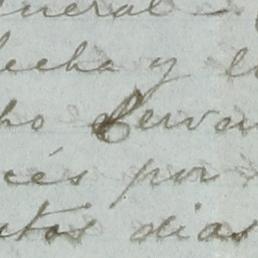 neral
fecha y l
ho Cervan
cés por
ntos dias